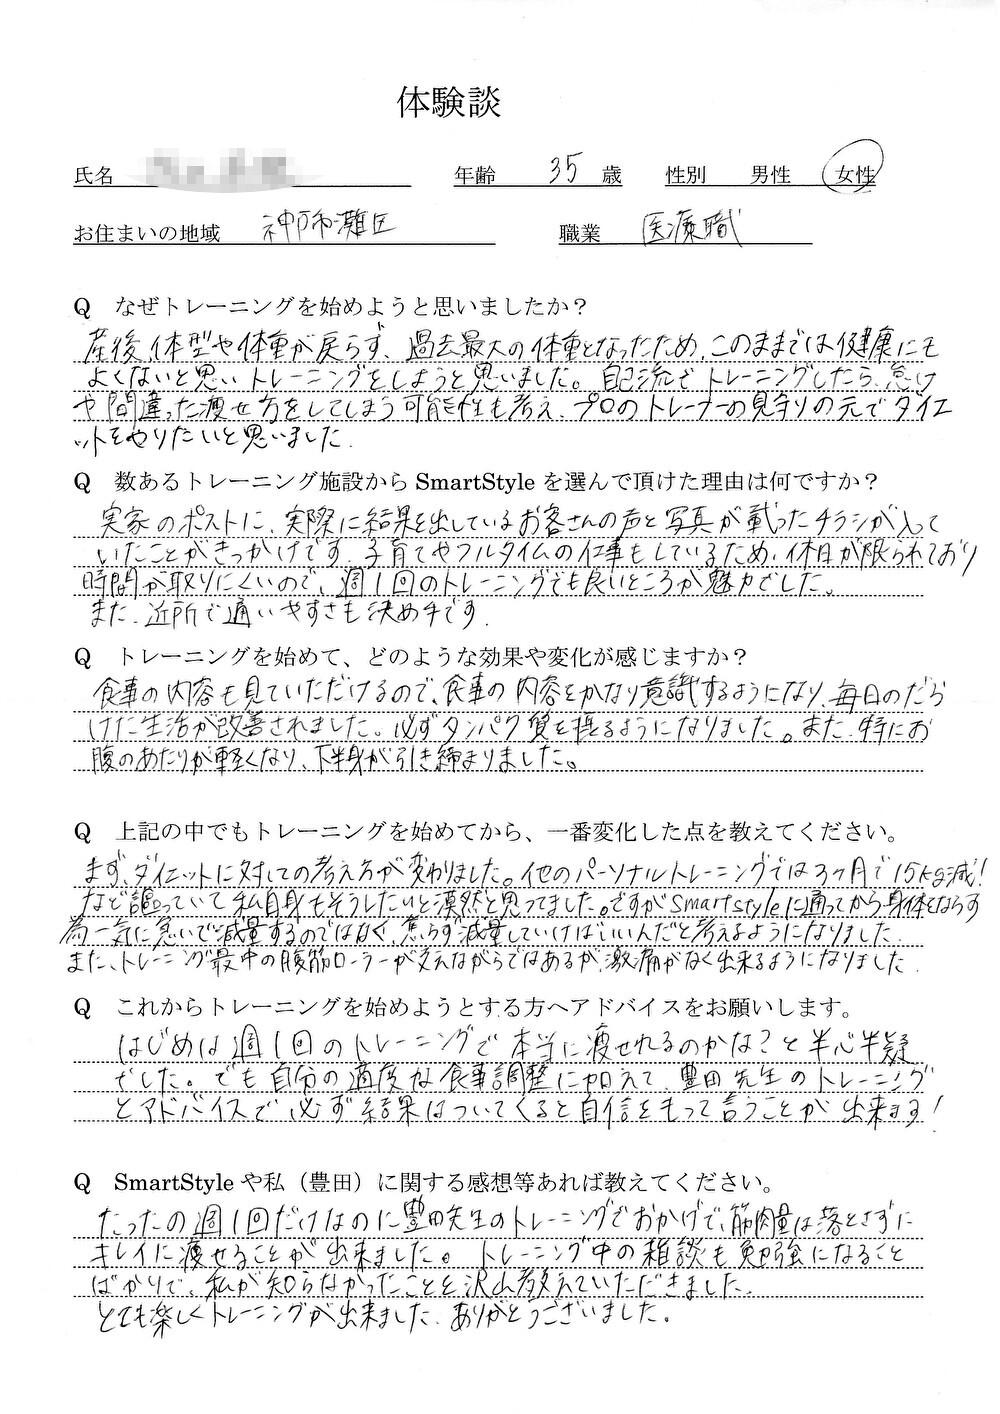 体験談
氏名 年齢 35 歳 性別 男性 女性
お住まいの地域 神戸市灘区 職業 医療職
Q なぜトレーニングを始めようと思いましたか？
産後、体型や体重が戻らず、過去最大の体重となったため、このままでは健康にも
よくないと思いトレーニングをしようと思いました。自己流でトレーニングしたら、怠け
や間違った痩せ方をしてしまう可能性も考え、プロのトレーナーの見守りの元でダイエ
ットをやりたいと思いました。
Q 数あるトレーニング施設から SmartStyle を選んで頂けた理由は何ですか？
実家のポストに、実際に結果を出しているお客さんの声と写真が載ったチラシが入って
いたことがきっかけです。子育てやフルタイムの仕事もしているため、休日が限られており
時間が取りにくいので、週1回のトレーニングでも良いところが魅力でした。
また、近所で通いやすさも決め手です。
Q トレーニングを始めて、どのような効果や変化が感じますか？
食事の内容も見ていただけるので、食事の内容をかなり意識するようになり、毎日のだら
けた生活が改善されました。必ずタンパク質を摂るようになりました。また、特にお
腹のあたりが軽くなり、下半身が引き締まりました。
Q 上記の中でもトレーニングを始めてから、一番変化した点を教えてください。
まず、ダイエットに対しての考え方が変わりました。他のパーソナルトレーニングでは3ヶ月で15kg減！
など謳っていて私自身もそうしたいと漠然と思ってました。ですがSmartstyleに通ってから身体をならす
為一気に急いで減量するのではなく、焦らず減量していけばいいんだと考えるようになりました。
また、トレーニング最中の腹筋ローラーが支えながらではあるが、激痛がなく出来るようになりました。
Q これからトレーニングを始めようとする方へアドバイスをお願いします。
はじめは週1回のトレーニングで本当に痩せれるのかな？と半心半疑
でした。でも自分の適度な食事調整に加えて、豊田先生のトレーニング
とアドバイスで必ず結果はついてくると自信をもって言うことが出来ます！
Q SmartStyle や私（豊田）に関する感想等あれば教えてください。
たったの週1回だけなのに豊田先生のトレーニングでおかげで、筋肉量は落とさずに
キレイに痩せることが出来ました。トレーニング中の雑談も勉強になること
ばかりで、私が知らなかったことを沢山教えていただきました。
とても楽しくトレーニングが出来ました。ありがとうございました。